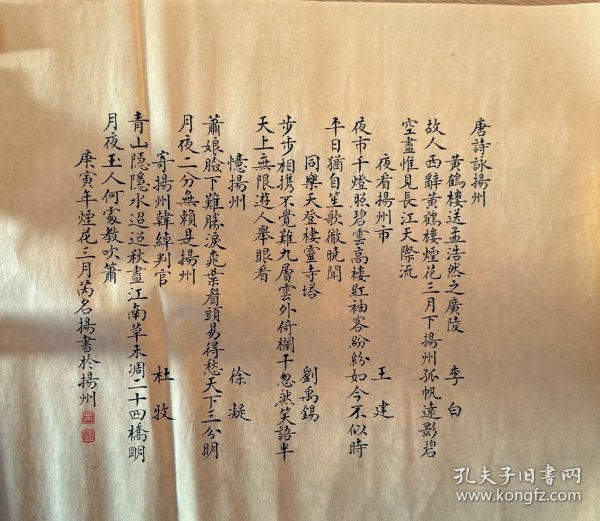 唐詩詠揚州
黃鶴樓送孟浩然之廣陵 李白
故人西辭黃鶴樓煙花三月下揚州孤帆遠影碧
空盡惟見長江天際流
夜看揚州市 王建
夜市千燈照碧雲高樓紅袖客紛紛如今不似時
平日猶自笙歌徹曉聞
同樂天登棲靈寺塔 劉禹錫
步步相攜不覺難九層雲外倚欄干忽然笑語半
天上無限遊人舉眼看
憶揚州 徐凝
蕭娘臉下難勝淚桃葉眉頭易得愁天下三分明
月夜二分無賴是揚州
寄揚州韓綽判官 杜牧
青山隱隱水迢迢秋盡江南草未凋二十四橋明
月夜玉人何處教吹簫
庚寅年煙花三月芮名揚書於揚州
孔夫子旧书网
www.kongfz.com